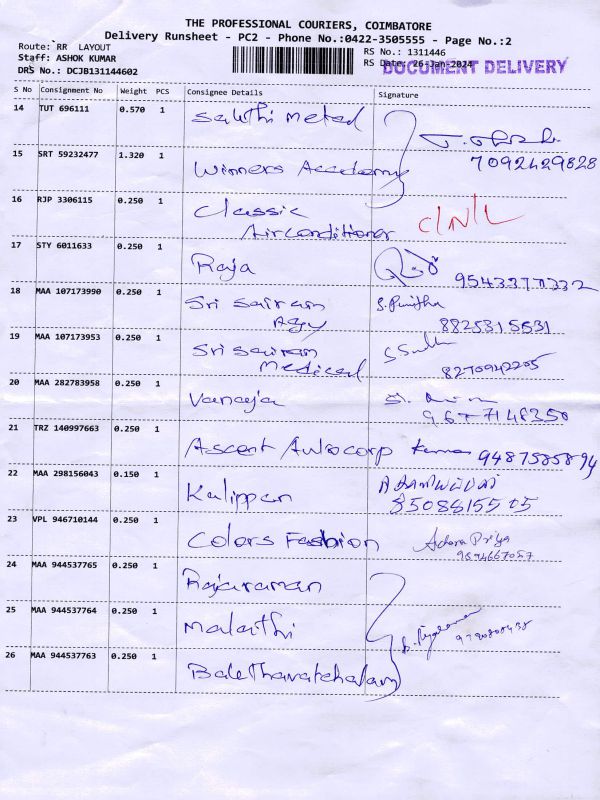 THE PROFESSIONAL COURIERS, COIMBATORE
Delivery Runsheet - PC2 - Phone No.:0422-3505555 - Page No.:2
Route: RR LAYOUT
Staff: ASHOK KUMAR
DRS No.: DCJB131144602
RS No.: 1311446
RS Date: 26-Jan-2024
DOCUMENT DELIVERY
S No Consignment No Weight PCS Consignee Details Signature
14 TUT 696111 0.570 1 Sakthi Metal
7092429828
15 SRT 59232477 1.320 1 Winners Academy
16 RJP 3306115 0.250 1 Classic
Airconditioner C/N/L
17 STY 6011633 0.250 1 Raja
9543377232
18 MAA 107173990 0.250 1 Sri Sairam
Agy S. Punitha
8825315531
19 MAA 107173953 0.250 1 Sri Sairam
Medical
8270942205
20 MAA 282783958 0.250 1 Vanaja
9677148350
21 TRZ 140997663 0.250 1 Ascent Autocorp Kumar 9487585894
22 MAA 298156043 0.150 1 Kalippan
23 VPL 946710144 0.250 1 Colors Fashion Priya
9894667057
24 MAA 944537765 0.250 1 Rajaraman
25 MAA 944537764 0.250 1 Malathi
26 MAA 944537763 0.250 1